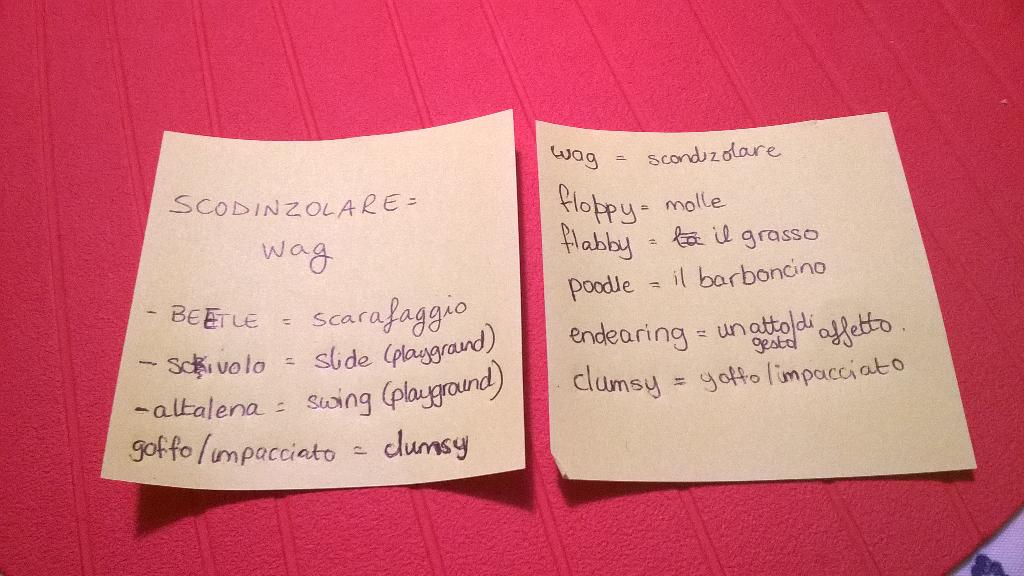 SCODINZOLARE =
wag
- BEETLE = scarafaggio
- scivolo = slide (playground)
- altalena = swing (playground)
goffo/impacciato = clumsy
wag = scondizolare
floppy = molle
flabby = il grasso
poodle = il barboncino
endearing = un atto/di affetto.
gesto
clumsy = goffo/impacciato